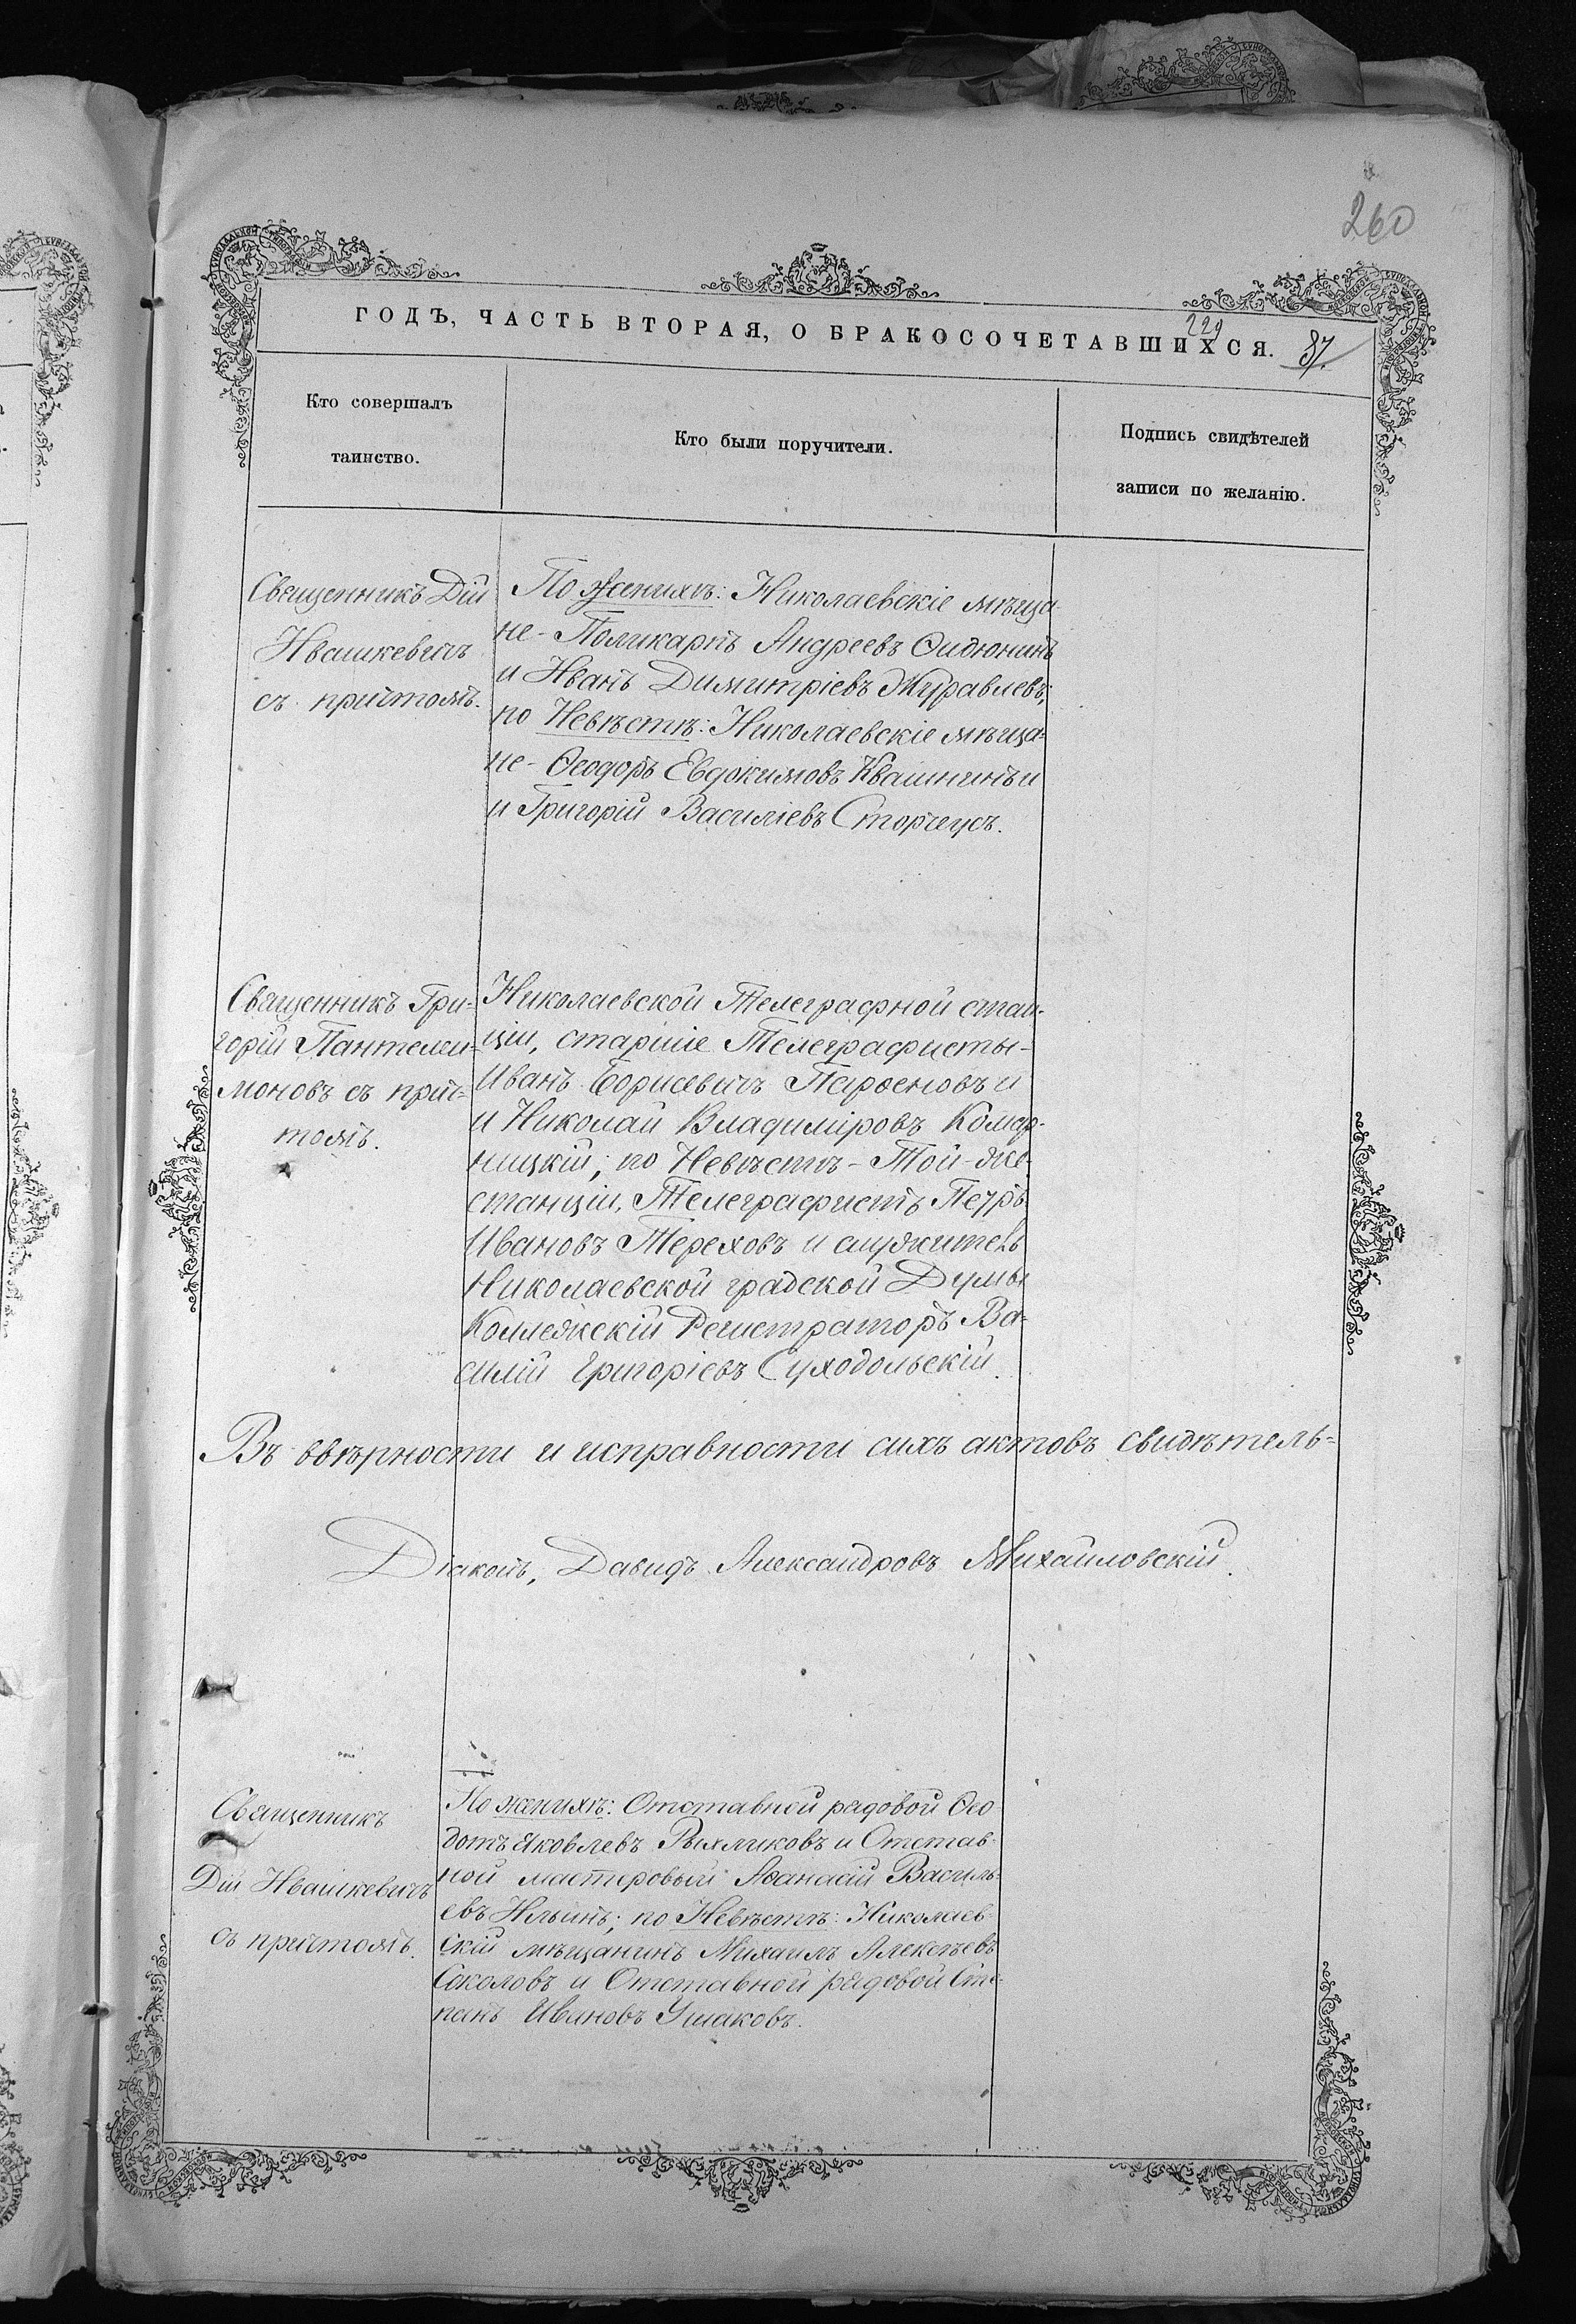 260
229
ГОДЪ, ЧАСТЬ ВТОРАЯ, О БРАКОСОЧЕТАВШИХСЯ. 87.
Кто совершалъ
таинство.
Кто были поручители.
Подпись свидѣтелей
записи по желанію.
Священникъ Дій
Ивашкевичъ
съ причтомъ.
По женихѣ: Николаевскіе мѣща-
не - Поликарпъ Андреевъ
и Иванъ Димитріевъ Журавлевъ;
по Невѣстѣ: Николаевскіе мѣща-
не - Ѳеодоръ Евдокимовъ Квашнинъ и
и Григорій Василіевъ Сторчеусъ.
Священникъ Гри-
горій Пантелеи-
моновъ съ прич-
томъ.
Николаевской Телеграфной стан-
ціи, старшіе Телеграфисты -
Иванъ Борисевичъ и
и Николай Владиміровъ
ницкій; по Невѣстѣ - Той-же
станціи, Телеграфистъ Петръ
Ивановъ Тереховъ и служитель
Николаевской градской Думы
Коллежскій Регистраторъ Ва-
силій Григоріевъ Суходольскій.
Въ ввѣрности и исправности сихъ актовъ свидѣтель-
Діаконъ, Давидъ Александровъ Михайловскій.
Священникъ
Дій Ивашкевичъ
съ причтомъ.
По женихѣ: Отставной рядовой Ѳео-
дотъ Яковлевъ Рыхликовъ и Отстав-
ной мастеровый Аѳанасій Василь-
евъ Ильинъ; по Невѣстѣ: Николаев-
скій мѣщанинъ Михаилъ Алексѣевъ
Соколовъ и Отставной рядовой Сте-
панъ Ивановъ Ушаковъ.